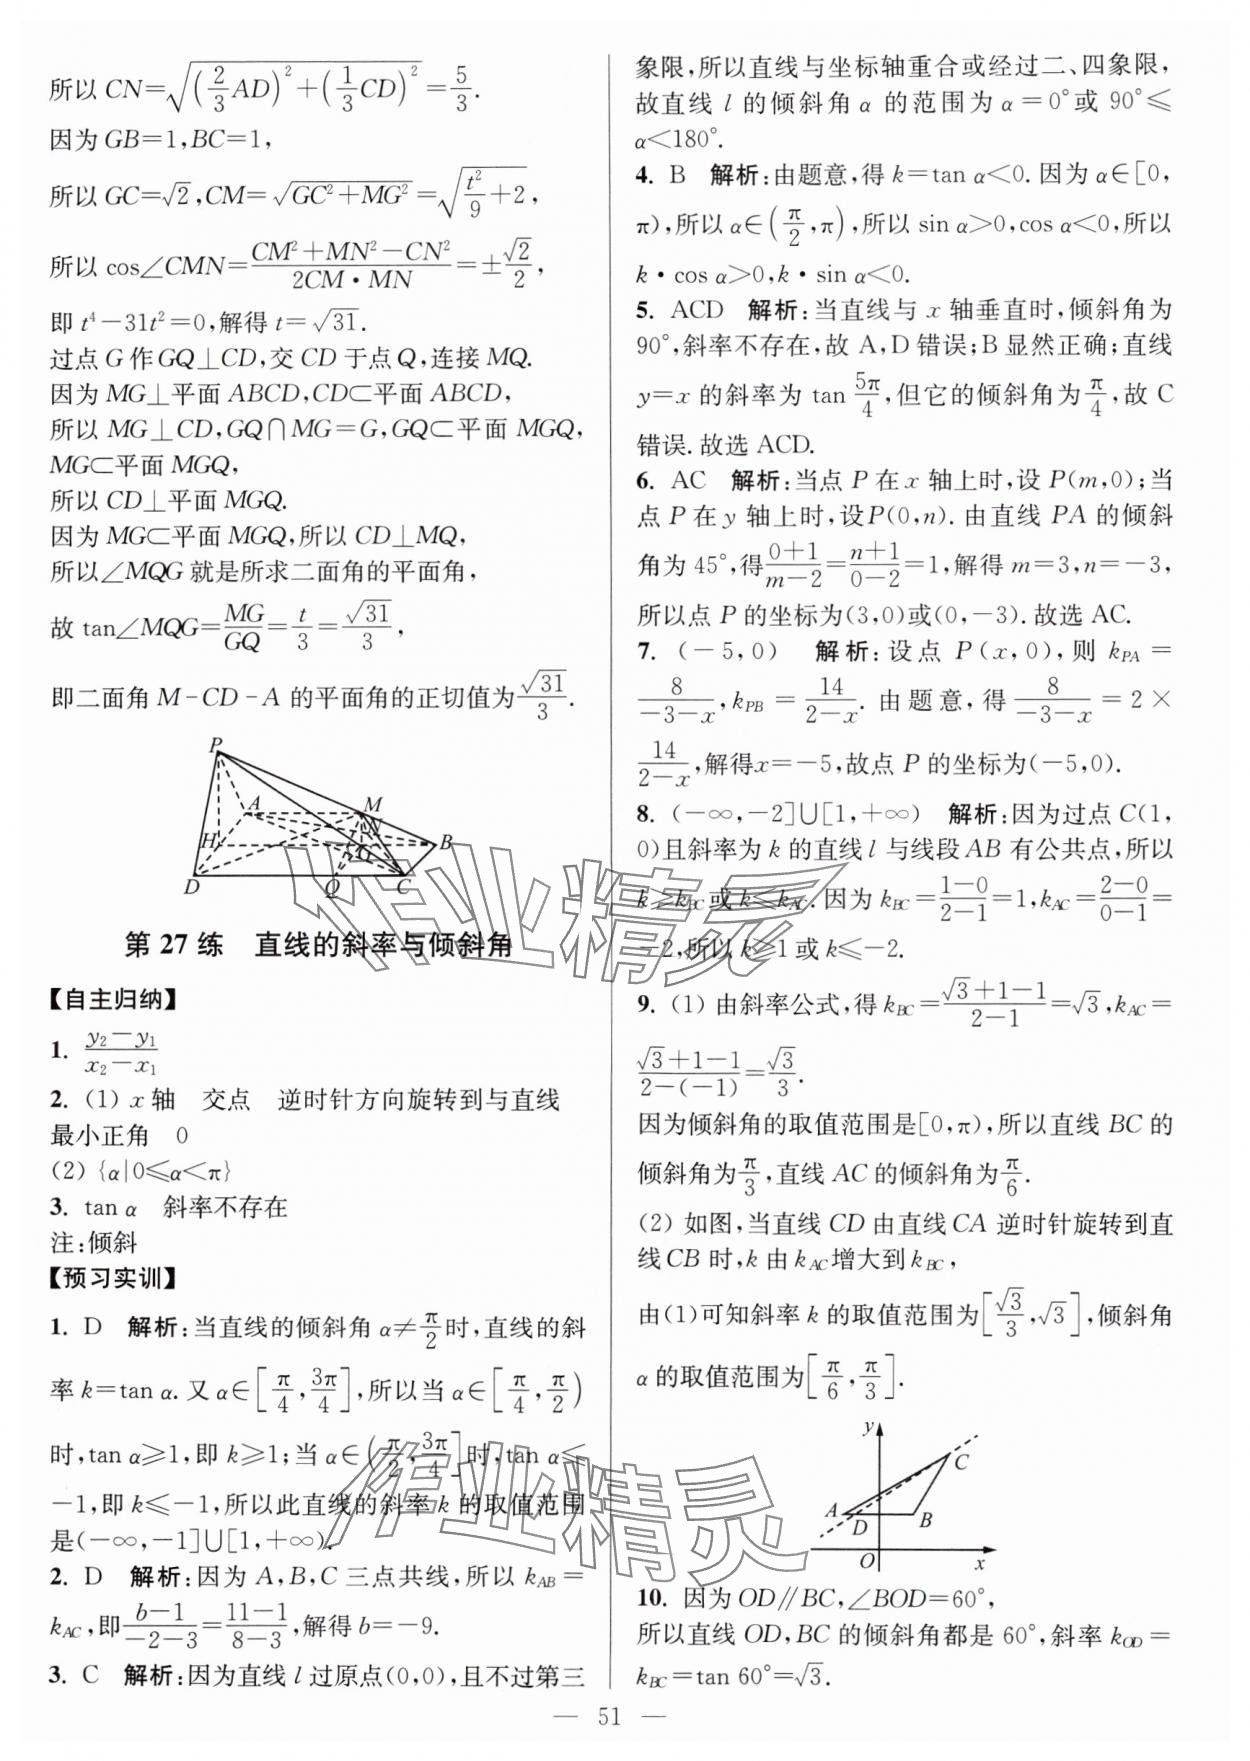 所以 CN=√((2/3 AD)²+(1/3 CD)²)=5/3.
因为 GB=1,BC=1,
所以 GC=√2,CM=√(GC²+MG²)=√(t²/9+2),
所以 cos∠CMN=(CM²+MN²-CN²)/(2CM·MN)=±√2/2,
即 t⁴-31t²=0,解得 t=√31.
过点 G 作 GQ⊥CD,交 CD 于点 Q,连接 MQ.
因为 MG⊥平面 ABCD,CD⊂平面 ABCD,
所以 MG⊥CD,GQ∩MG=G,GQ⊂平面 MGQ,
MG⊂平面 MGQ,
所以 CD⊥平面 MGQ.
因为 MG⊂平面 MGQ,所以 CD⊥MQ,
所以∠MQG 就是所求二面角的平面角,
故 tan∠MQG=MG/GQ=t/3=√31/3,
即二面角 M-CD-A 的平面角的正切值为√31/3.
P
A
M
H
N
B
G
D
Q
C
第 27 练 直线的斜率与倾斜角
【自主归纳】
1. (y₂-y₁)/(x₂-x₁)
2. (1) x 轴 交点 逆时针方向旋转到与直线
最小正角 0
(2) {α|0≤α<π}
3. tan α 斜率不存在
注:倾斜
【预习实训】
1. D 解析:当直线的倾斜角 α≠π/2时,直线的斜
率 k=tan α.又 α∈[π/4,3π/4],所以当 α∈[π/4,π/2)
时,tan α≥1,即 k≥1;当 α∈(π/2,3π/4]时,tan α≤
-1,即 k≤-1,所以此直线的斜率 k 的取值范围
是(-∞,-1]∪[1,+∞).
2. D 解析:因为 A,B,C 三点共线,所以 k_AB=
k_AC,即(b-1)/(-2-3)=(11-1)/(8-3),解得 b=-9.
3. C 解析:因为直线 l 过原点(0,0),且不过第三
象限,所以直线与坐标轴重合或经过二、四象限,
故直线 l 的倾斜角 α 的范围为 α=0°或 90°≤
α<180°.
4. B 解析:由题意,得 k=tan α<0.因为 α∈[0,
π),所以 α∈(π/2,π),所以 sin α>0,cos α<0,所以
k·cos α>0,k·sin α<0.
5. ACD 解析:当直线与 x 轴垂直时,倾斜角为
90°,斜率不存在,故 A,D 错误;B 显然正确;直线
y=x 的斜率为 tan 5π/4,但它的倾斜角为π/4,故 C
错误.故选 ACD.
6. AC 解析:当点 P 在 x 轴上时,设 P(m,0);当
点 P 在 y 轴上时,设P(0,n).由直线 PA 的倾斜
角为 45°,得(0+1)/(m-2)=(n+1)/(0-2)=1,解得 m=3,n=-3,
所以点 P 的坐标为(3,0)或(0,-3).故选 AC.
7. (-5,0) 解析:设点 P(x,0),则 k_PA=
8/(-3-x),k_PB=14/(2-x).由题意,得8/(-3-x)=2×
14/(2-x),解得x=-5,故点 P 的坐标为(-5,0).
8. (-∞,-2]∪[1,+∞) 解析:因为过点 C(1,
0)且斜率为 k 的直线 l 与线段 AB 有公共点,所以
k≥k_BC或 k≤k_AC.因为 k_BC=(1-0)/(2-1)=1,k_AC=(2-0)/(0-1)=
-2,所以 k≥1 或 k≤-2.
9. (1) 由斜率公式,得 k_BC=(√3+1-1)/(2-1)=√3,k_AC=
(√3+1-1)/(2-(-1))=√3/3.
因为倾斜角的取值范围是[0,π),所以直线 BC 的
倾斜角为π/3,直线 AC 的倾斜角为π/6.
(2) 如图,当直线 CD 由直线 CA 逆时针旋转到直
线 CB 时,k 由 k_AC增大到 k_BC,
由(1)可知斜率 k 的取值范围为[√3/3,√3],倾斜角
α 的取值范围为[π/6,π/3].
y
C
A
D
B
O
x
10. 因为 OD∥BC,∠BOD=60°,
所以直线 OD,BC 的倾斜角都是 60°,斜率 k_OD=
k_BC=tan 60°=√3.
— 51 —
作业精灵
作业精灵